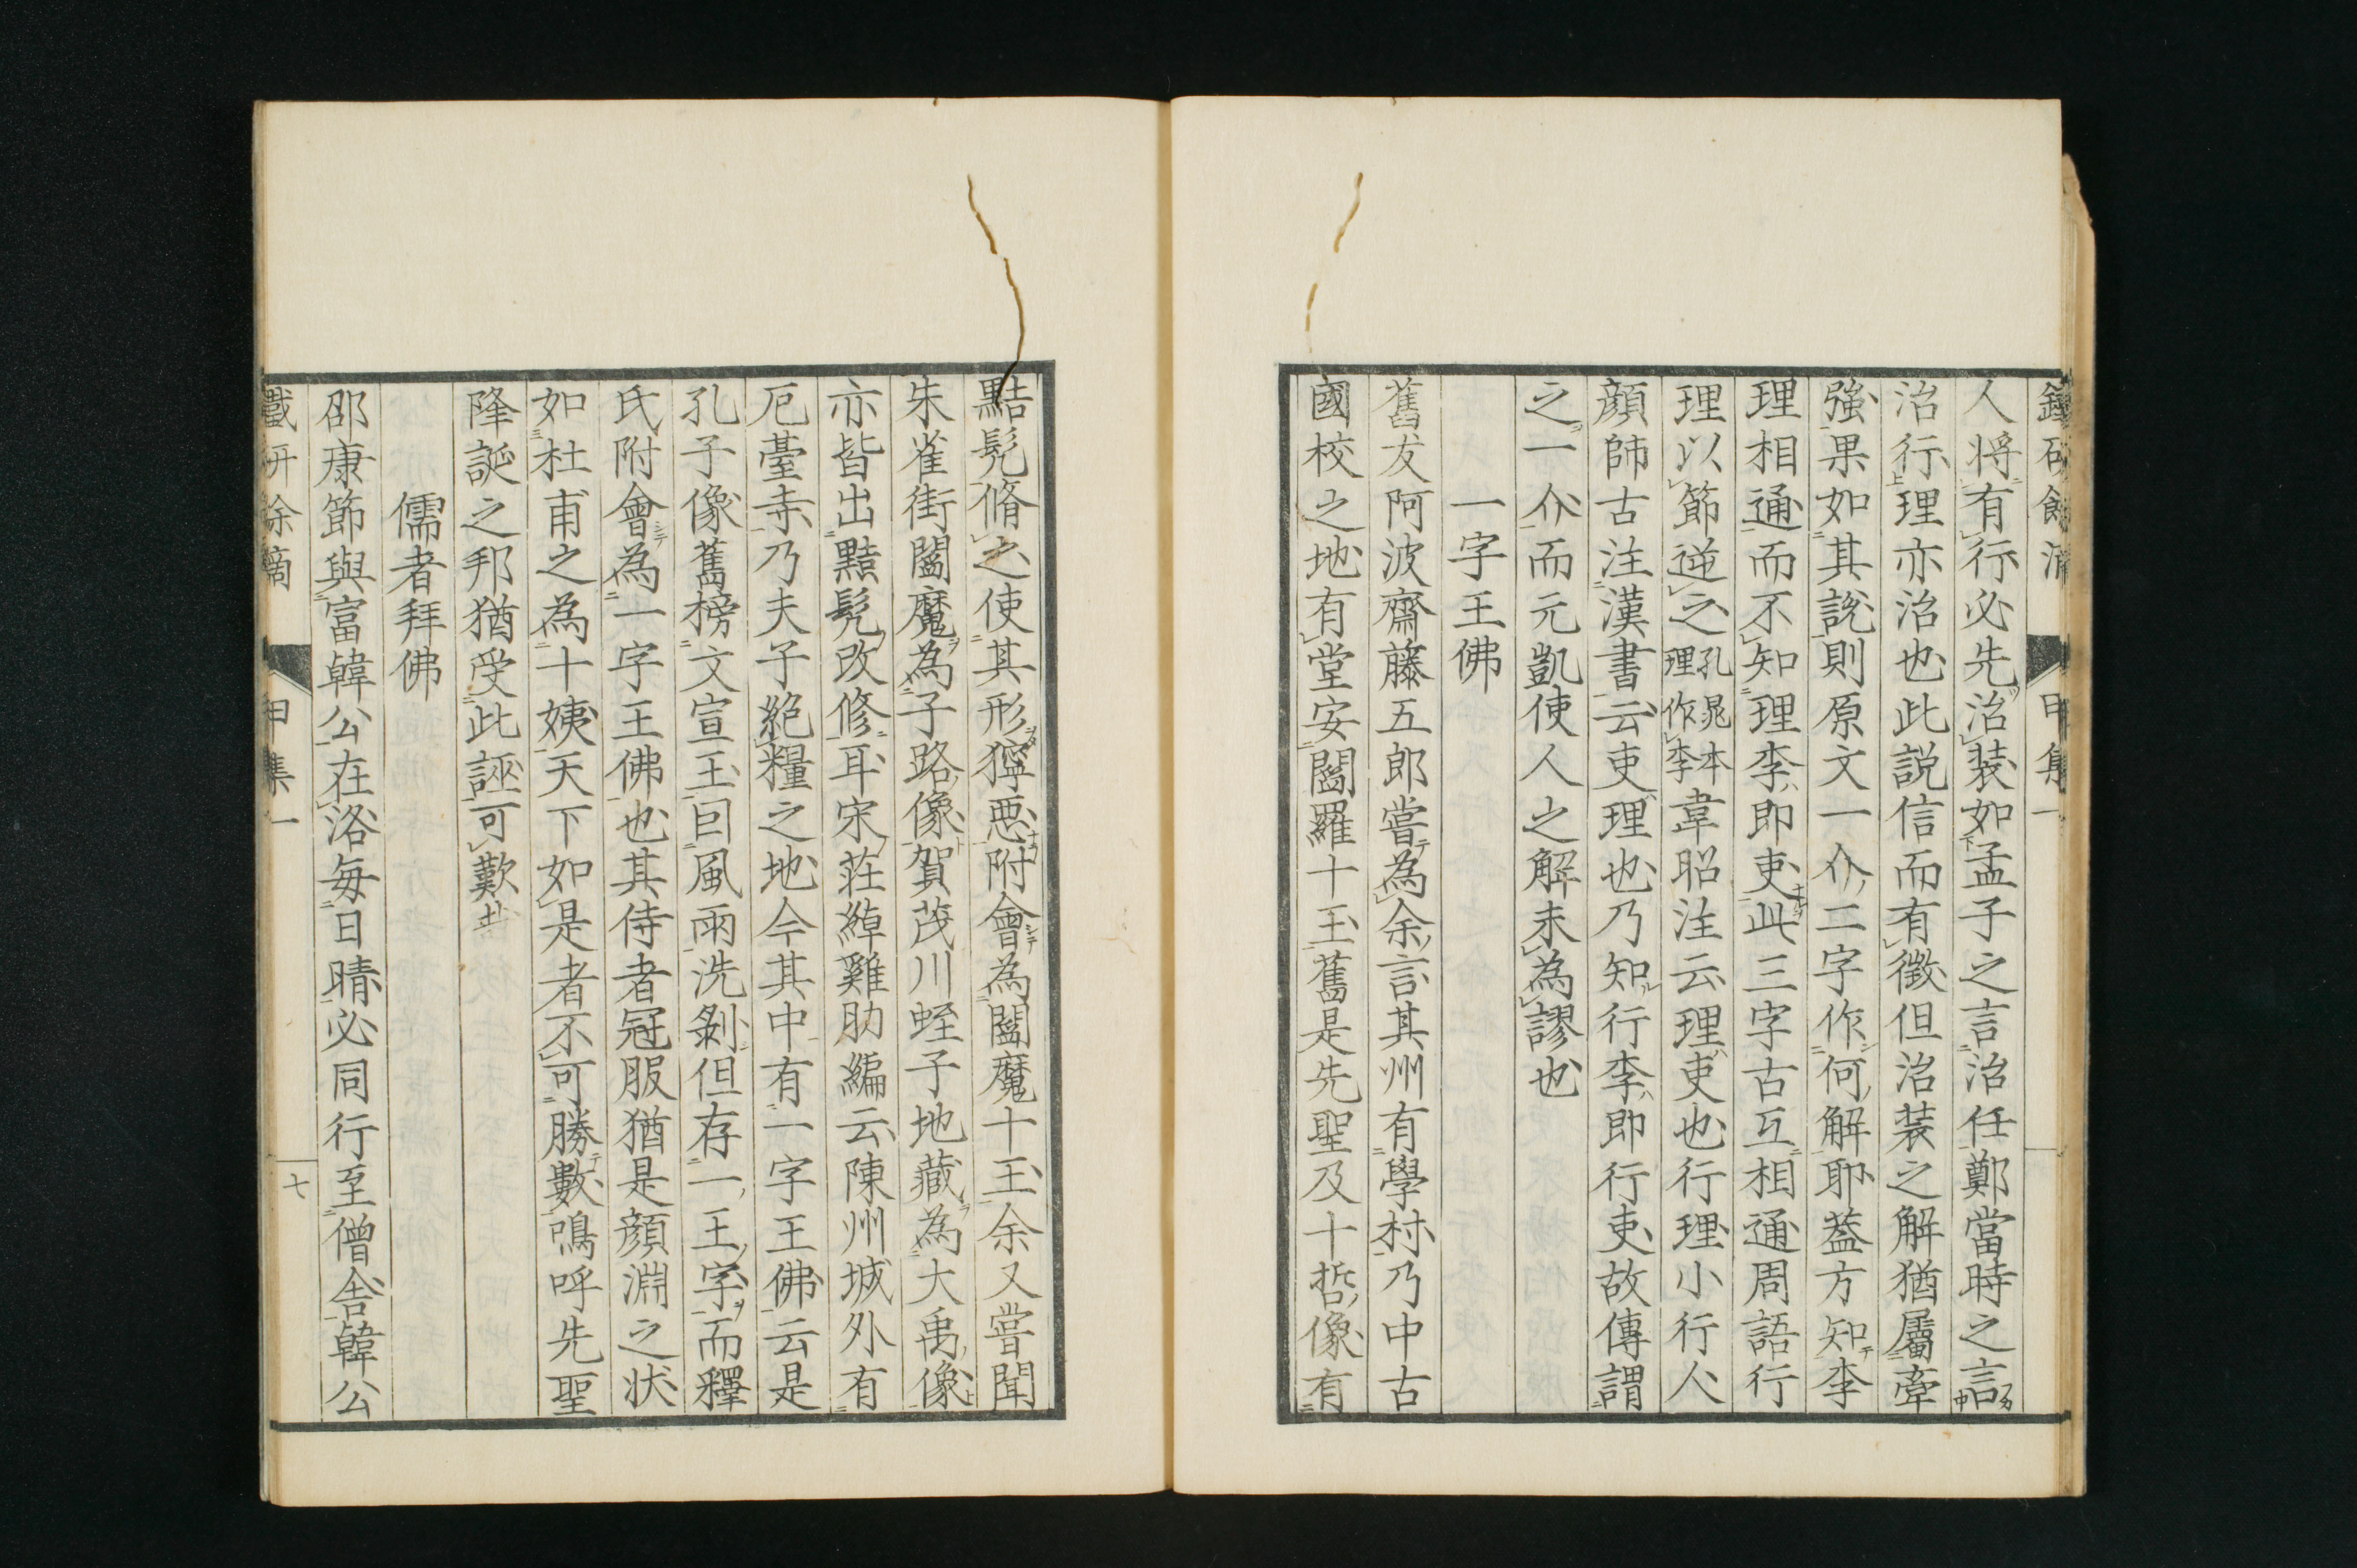 人将有行必先治装如孟子之言治任鄭當時之言
治行理亦治也此説信而有徴但治装之解猶屬牽
強果如其説則原文一介二字作何解耶葢方知李
理相通而不知理李即吏此三字古互相通周語行
理以節逆之孔晁本理作李韋昭注云理吏也行理小行人
顔師古注漢書云吏理也乃知行李即行吏故傳謂
之一介而元凱使人之解未為謬也
一字王佛
舊友阿波齋藤五郎嘗為余言其州有學村乃中古
國校之地有堂安閻羅十王舊是先聖及十哲像有
點髡脩之使其形獰悪附會為閻魔十王余又嘗聞
朱雀街閻魔為子路像賀茂川蛭子地藏為大禹像
亦皆出黠髡改修耳宋莊綽雞肋編云陳州城外有
厄臺寺乃夫子絶糧之地今其中有一字王佛云是
孔子像舊榜文宣王因風雨洗剝但存一王字而釋
氏附會為一字王佛也其侍者冠服猶是顔淵之状
如杜甫之為十姨天下如是者不可勝數嗚呼先聖
降誕之邦猶受此誣可歎
儒者拜佛
邵康節與富韓公在洛毎日晴必同行至僧舎韓公
甲集一
七